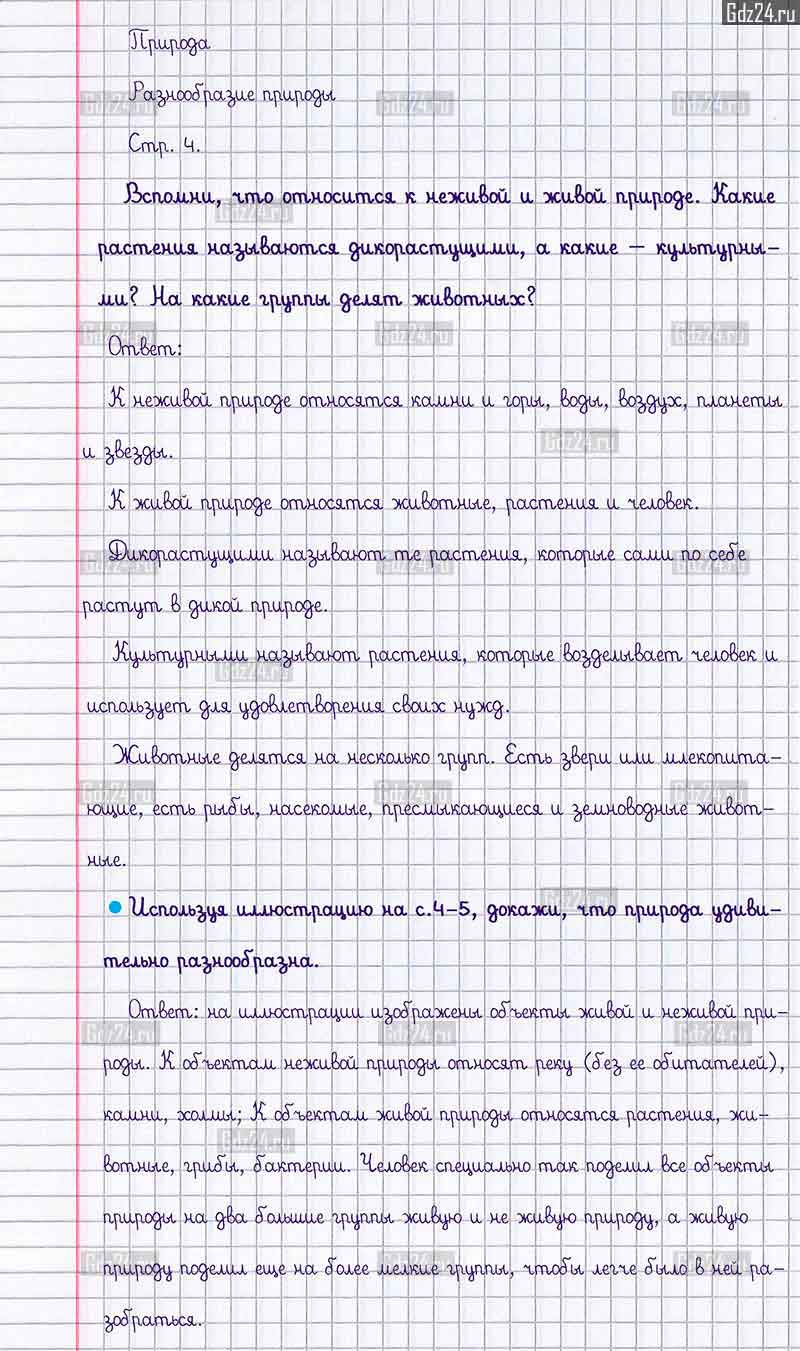 Gdz24.ru
Природа
Разнообразие природы
Стр. 4.
Вспомни, что относится к неживой и живой природе. Какие
растения называются дикорастущими, а какие – культурны-
ми? На какие группы делят животных?
Ответ:
К неживой природе относятся камни и горы, воды, воздух, планеты
и звезды.
К живой природе относятся животные, растения и человек.
Дикорастущими называют те растения, которые сами по себе
растут в дикой природе.
Культурными называют растения, которые возделывает человек и
использует для удовлетворения своих нужд.
Животные делятся на несколько групп. Есть звери или млекопита-
ющие, есть рыбы, насекомые, пресмыкающиеся и земноводные живот-
ные.
Используя иллюстрацию на с.4-5, докажи, что природа удиви-
тельно разнообразна.
Ответ: на иллюстрации изображены объекты живой и неживой при-
роды. К объектам неживой природы относят реку (без ее обитателей),
камни, холмы; К объектам живой природы относятся растения, жи-
вотные, грибы, бактерии. Человек специально так поделил все объекты
природы на два большие группы живую и не живую природу, а живую
природу поделил еще на более мелкие группы, чтобы легче было в ней ра-
зобраться.